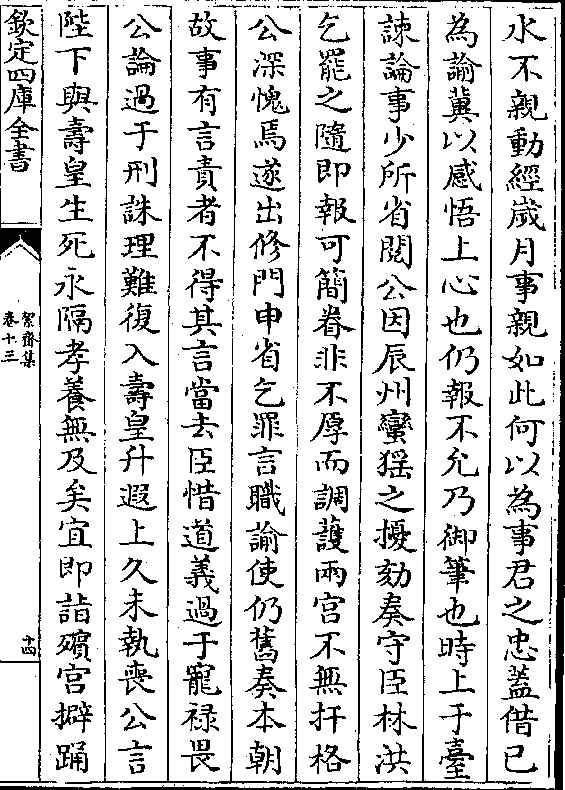 水不親動經歲月事親如此何以為事君之忠蓋借已
為諭冀以感悟上心也仍報不允乃御筆也時上于臺
諫論事少所省閱公因辰州蠻猺之擾劾奏守臣林洪
乞罷之隨即報可簡眷非不厚而調護兩宮不無扞格
公深愧焉遂出修門申省乞罪言職諭使仍舊奏本朝
故事有言責者不得其言當去臣惜道義過于寵禄畏
公論過于刑誅理難復入壽皇升遐上久未執喪公言
陛下與壽皇生死永隔孝養無及矣宜即詣殯宮擗踊
欽定四庫全書
絜齋集
卷十三
十四